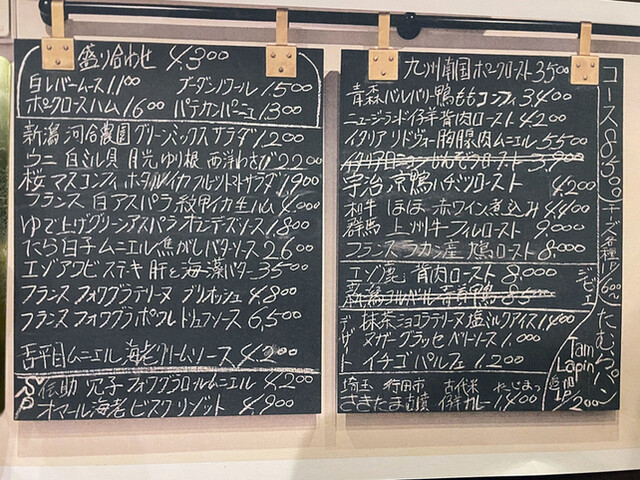 盛り合わせ 4,300
白レバームース 1,100 ブーダンノワール 1,500
ポークロースハム 1,600 パテカンパーニュ 1,300
新潟 河合農園グリーンミックスサラダ 1,200
ウニ 白ミル貝 月光ゆり根 西洋わさび 2,200
桜マスコンフィ ホタルイカ フルーツトマトサラダ 1,900
フランス 白アスパラ 紋甲イカ 生ハム 4,000
ゆで上げグリーンアスパラ オランデーズソース 1,800
たら白子ムニエル焦がしバターソース 2,600
エゾアワビステーキ 肝と海藻バター 3,500
フランス フォワグラテリーヌ ブリオッシュ 4,800
フランス フォワグラポワレ トリュフソース 6,500
舌平目ムニエル 海老クリームソース 4,200
伝助穴子 フォワグラロールムニエル 4,200
オマール海老 ビスクリゾット 4,900
九州南国ポークロースト 3,500
青森バルバリー鴨ももコンフィ 3,400
ニュージーランド仔羊背肉ロースト 4,200
イタリア リドヴォー胸腺肉ムニエル 5,500
3,900
宇治 京鴨ハチミツロースト 4,200
和牛 ほほ赤ワイン煮込み 4,400
群馬 上州牛フィレロースト 9,000
フランスラカン産 鳩ロースト 8,000
エゾ鹿 背肉ロースト 8,000
8,500
ジビエ
デザート
抹茶ショコラテリーヌ塩ミルクアイス 1,400
ヌガーグラッセ ベリーソース 1,000
イチゴパルフェ 1,200
埼玉 行田市 古代米
さきたま古墳 仔羊カレー 1,400
コース 8,500
チーズ各種 1P 600〜
たむらパン
Tam Lapin
追加 1P 200